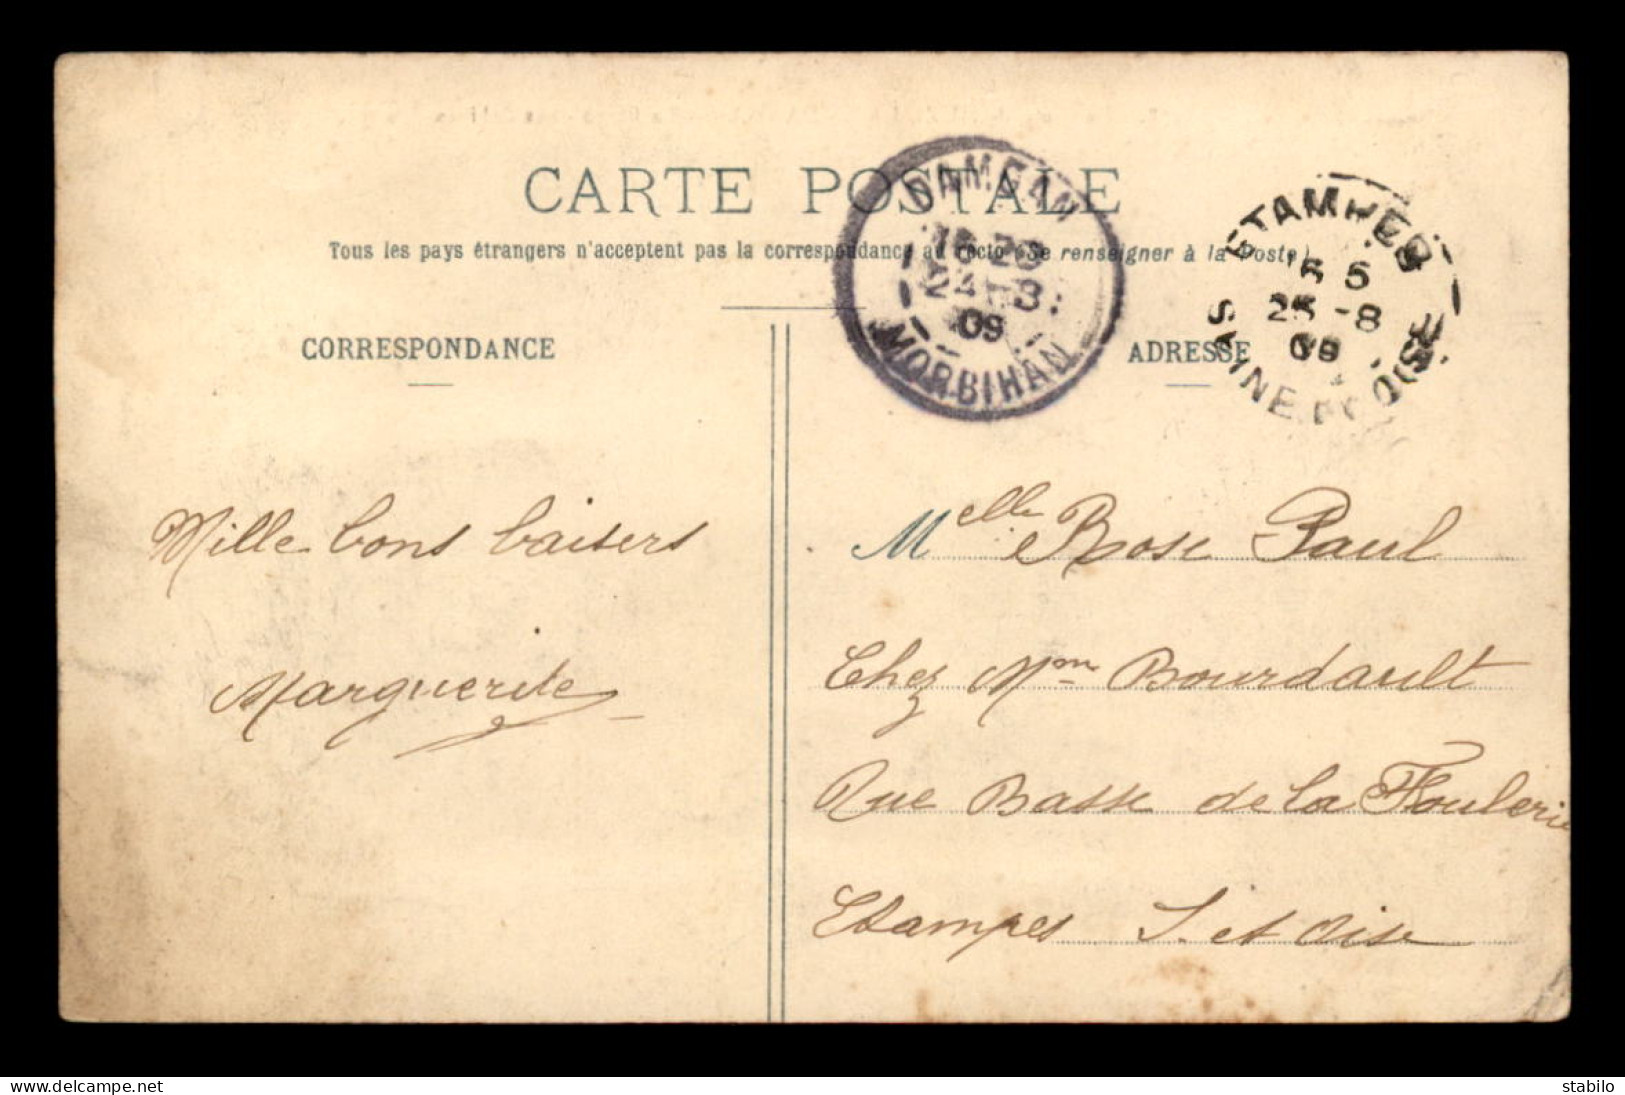 CARTE POSTALE
Tous les pays étrangers n'acceptent pas la correspondance au recto (Se renseigner à la Poste)
DAMGAN
24 -8
09
MORBIHAN
ETAMPES
25 -8
09
SEINE ET OISE
CORRESPONDANCE
ADRESSE
Mille bons baisers
Marguerite
Melle Rose Paul
Chez Mme Bourdault
Rue Basse de la Foulerie
Etampes S. et Oise
www.delcampe.net
stabilo